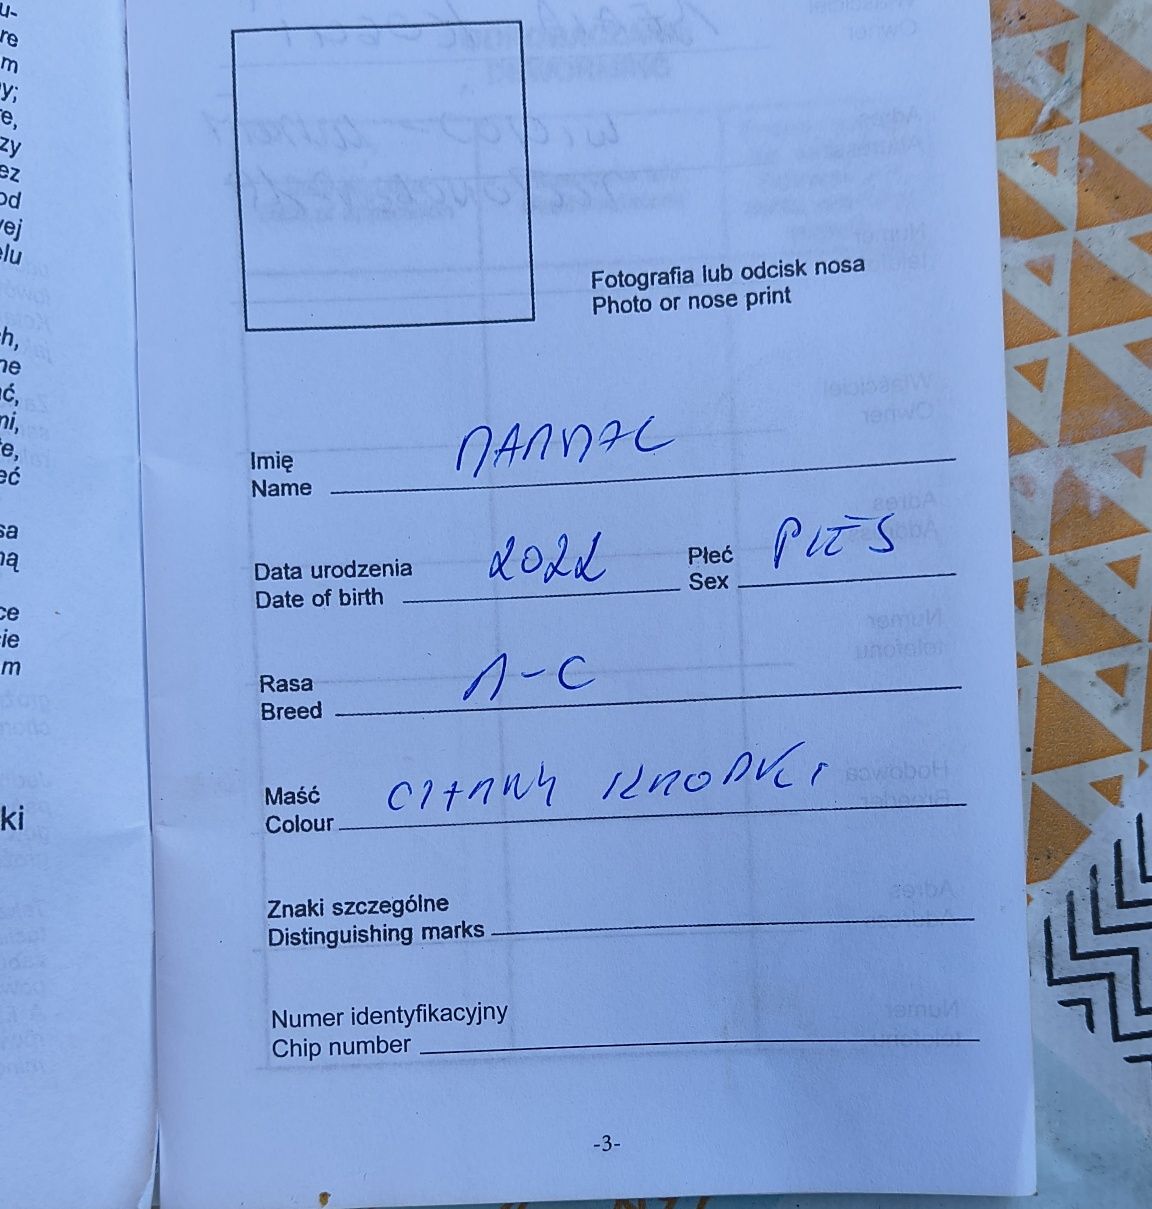 u-
re
m
y;
e,
zy
ez
od
ej
elu
h,
ne
ać,
mi,
te,
eć
sa
ną
ce
cie
m
ki
Fotografia lub odcisk nosa
Photo or nose print
Imię
Name
Data urodzenia 2022 Płeć PIES
Date of birth Sex
Rasa
Breed
Maść CZARNY
Colour
Znaki szczególne
Distinguishing marks
Numer identyfikacyjny
Chip number
-3-